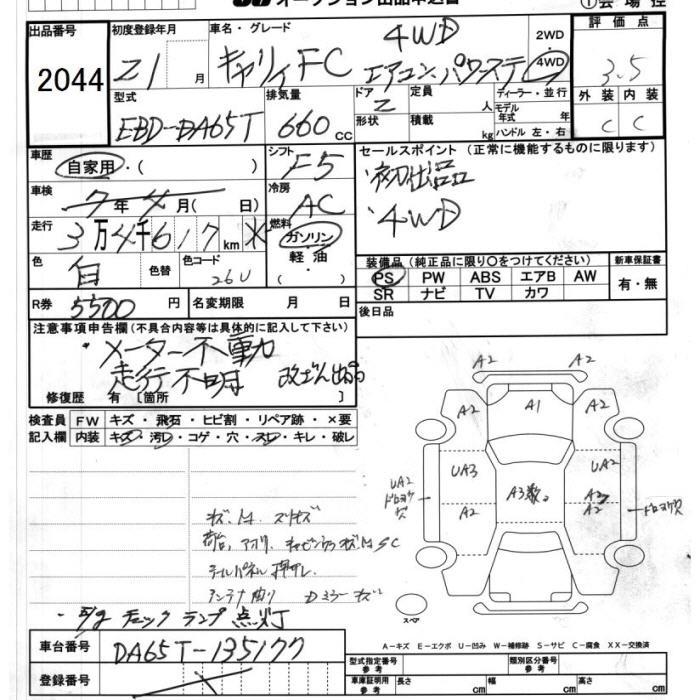 出品番号
2044
初度登録年月
21 月
車名・グレード
キャリィ FC 4WD エアコン、パワステ
2WD
4WD
評価点
3.5
外装 内装
C C
型式
EBD-DA65T
排気量
660 cc
ドア
2
形状
定員 人
積載 kg
ディーラー・並行
モデル年式 年
ハンドル 左・右
車歴
自家用・( )
シフト
F5
車検
7年4月( 日)
冷房
AC
走行
3万4千617km ✕
燃料
ガソリン
軽油
色
白
色替
色コード
26U
R券
5500円
名変期限 月 日
セールスポイント (正常に機能するものに限ります)
・初出品
・4WD
装備品 (純正品に限り○をつけてください)
PS PW ABS エアB AW
SR ナビ TV カワ
新車保証書
有・無
後日品
注意事項申告欄 (不具合内容等は具体的に記入して下さい)
・メーター不動
走行不明 改ざん出品
修復歴 有 [箇所 ]
検査員 FW キズ・飛石・ヒビ割・リペア跡・×要
記入欄 内装 キズ・汚レ・コゲ・穴・スレ・キレ・破レ
キズ.
荷台、アオリ、
テールパネル 押サレ、
アンテナ曲り Dミラーキズ
チェック ランプ 点灯
A2 A2
A2 A1 A2
UA3 UA2
A3数。
A2 A2
A2
UA2
スペア
A-キズ E-エクボ U-凹み W-補修跡 S-サビ C-腐食 XX-交換済
車台番号
DA65T-135177
登録番号
型式指定番号 参考
類別区分番号 参考
車庫証明用 参考
長さ cm
幅 cm
高さ cm